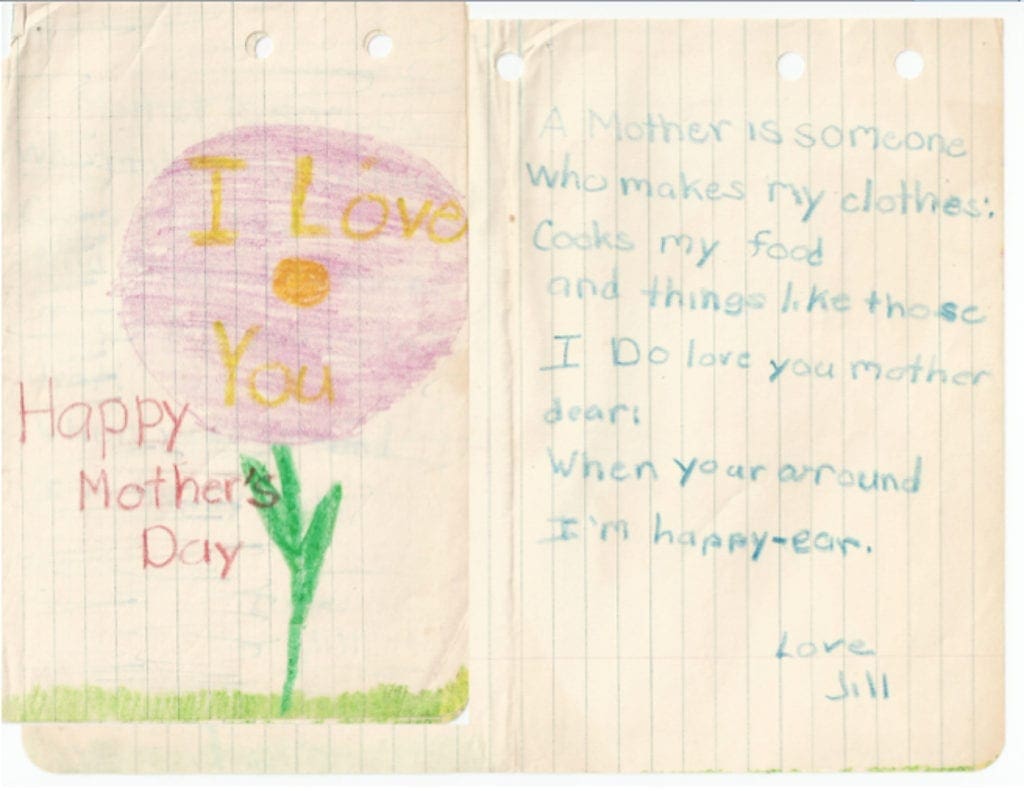 I Love
You
Happy
Mother's
Day
A Mother is someone
who makes my clothes:
Cooks my food
and things like those
I Do love you mother
dear:
When your arround
I'm happy-ear.
Love
Jill